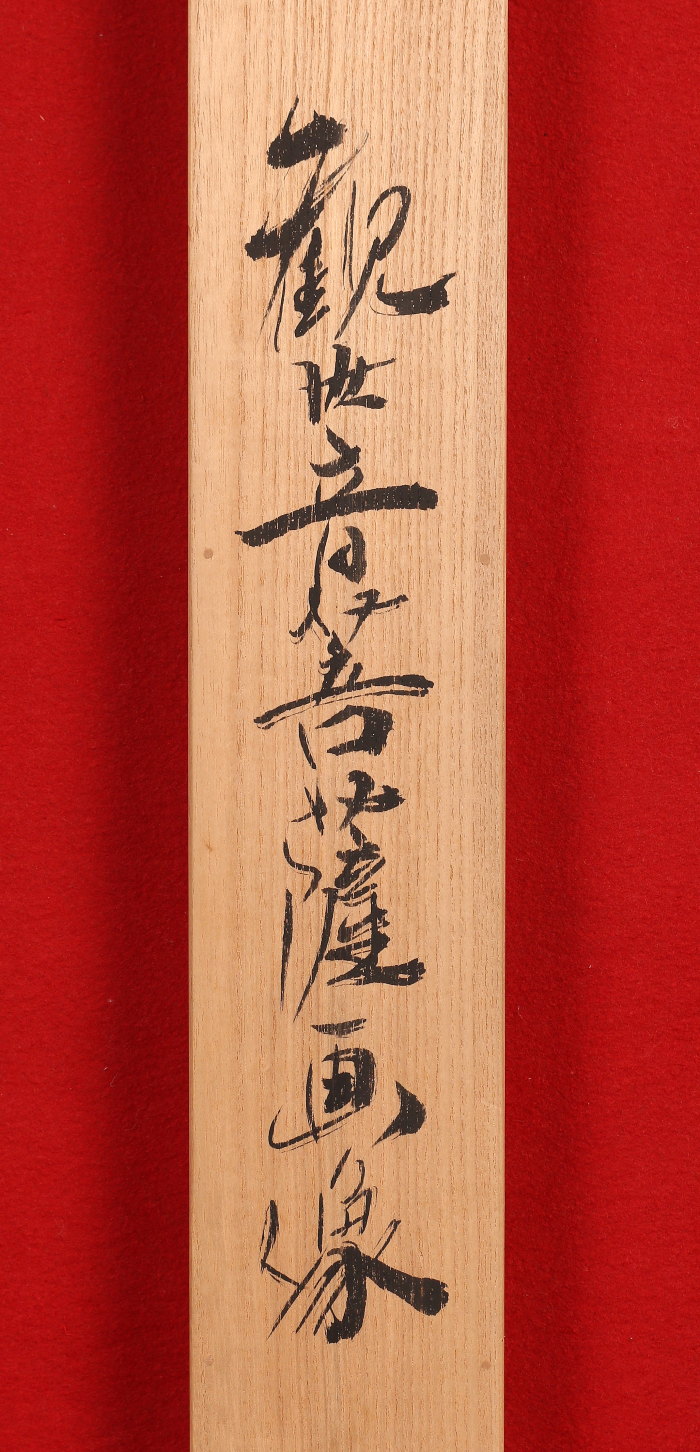 観世音菩薩画像